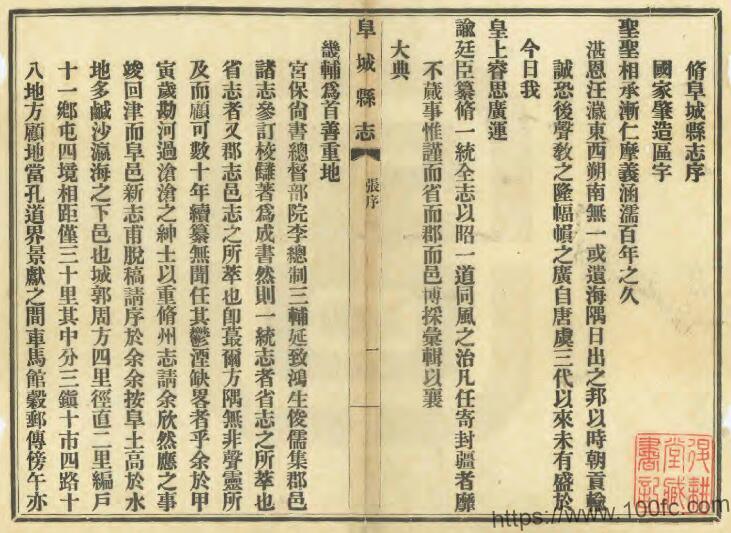 脩阜城縣志序
國家肇造區宇
聖聖相承漸仁摩義涵濡百年之久
湛恩汪濊東西朔南無一或遺海隅日出之邦以時朝貢輸
誠恐後聲敎之隆幅𢄙之廣自唐虞三代以來未有盛於
今日我
皇上睿思廣運
諭廷臣纂脩一統全志以昭一道同風之治凡任寄封疆者靡
不蕆事惟謹而省而郡而邑博採彙輯以襄
大典
阜城縣志
張序
一
畿輔爲首善重地
宮保尙書總督部院李總制三輔延致鴻生俊儒集郡邑
諸志參訂校讎著爲成書然則一統志者省志之所萃也
省志者又郡志邑志之所萃也卽蕞爾方隅無非聲靈所
及而顧可數十年續纂無聞任其鬱湮缺畧者乎余於甲
寅歲勘河過滄滄之紳士以重脩州志請余欣然應之事
竣回津而阜邑新志甫脫稿請序於余余按阜土高於水
地多鹹沙瀛海之下邑也城郭周方四里徑直二里編戶
十一鄉屯四境相距僅三十里其中分三鎭十市四路十
八地方顧地當孔道界景獻之間車馬館穀郵傳傍午亦
https://www.100fc.com